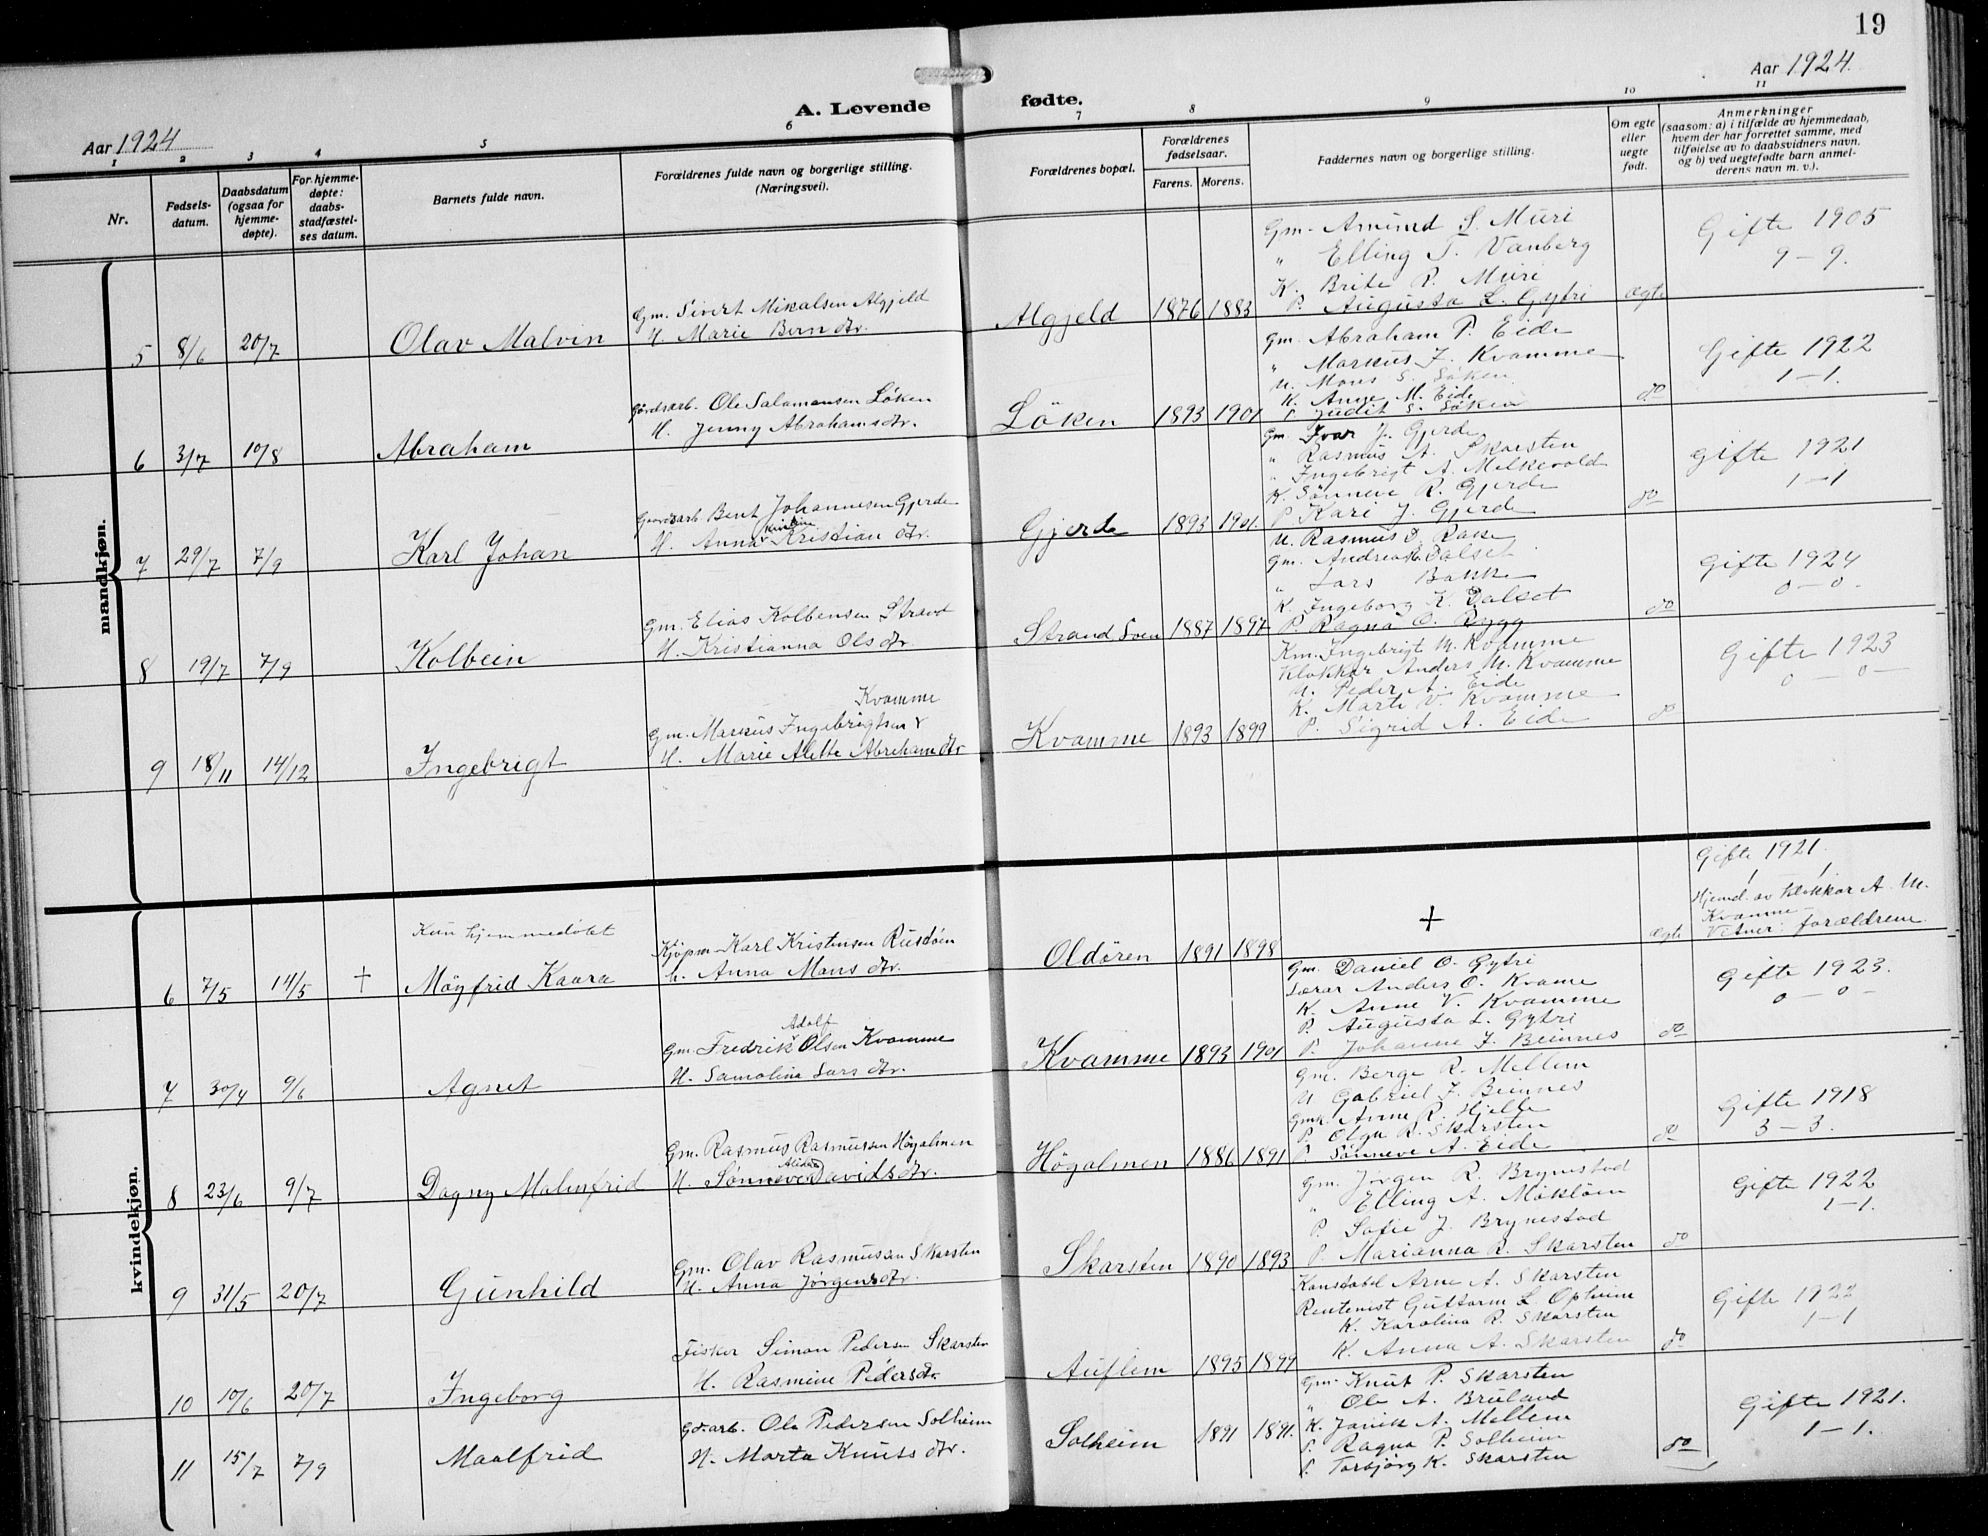 19
Aar 1924.
A. Levende fødte.
Aar 1924
1 2 3 4 5 6 7 8 9 10 11
Nr.
Fødsels-
datum.
Daabsdatum
(ogsaa for
hjemme-
døpte).
For hjemme-
døpte:
daabs-
stadfæstel-
ses datum.
Barnets fulde navn.
Forældrenes fulde navn og borgerlige stilling.
(Næringsvei).
Forældrenes bopæl.
Forældrenes
fødselsaar.
Farens. Morens.
Faddernes navn og borgerlige stilling.
Om egte
eller
uegte
født.
Anmerkninger
(saasom: a) i tilfælde av hjemmedaab,
hvem der har forrettet samme, med
tilføielse av to daabsvidners navn,
og b) ved uegtefødte barn anmel-
derens navn m. v.).
mandkjøn.
5 8/6 20/7 Olav Malvin
Gm. Sivert Mikalsen Algjeld
H. Marie Berndtr.
Algjeld 1876 1883
Gm. Amund S. Muri
" Elling T. Vanberg
K. Brite R. Muri
P. Augusta L. Gytri
Ægte
Gifte 1905
9 – 9.
6 3/7 10/8 Abraham
Gårdsarb. Ole Salamonsen Löken
H. Jenny Abrahamsdtr.
Löken 1893 1901
Gm. Abraham P. Eide
" Markus J. Kvamme
U. Mons S. Löken
K. Anne M. Eide
P. Judit S. Löken
do
Gifte 1922
1 – 1.
7 29/7 7/9 Karl Johan
Gaardsarb Bent Johannesen Gjerde
H. Anna Kristine Kristian dtr.
Gjerde 1893 1901.
Gm. Ivar J. Gjerde
" Rasmus A. Skarsten
" Ingebrigt A. Melkevold
K. Sönneve R. Gjerde
P. Kari J. Gjerde
do
Gifte 1921
1 – 1
8 19/7 7/9 Kolbein
Gm. Elias Kolbensen Strand
H. Kristianna Olsdtr.
Strand 1887 1897
U. Rasmus D. Rake
Gm. Andreas E. Dalset
" Lars Bakke
K. Ingeborg K. Dalset
P. Ragna O. Rygg
do
Gifte 1924
0 – 0.
9 18/11 14/12 Ingebrigt
Kvamme
Gm. Markus Ingebrigtsen
H. Marie Alette Abrahamdtr
Kvamme 1893 1899
Km. Ingebrigt M. Kvamme
Klokkar Anders M. Kvamme
U. Peder A. Eide
K. Marte V. Kvamme
P. Sigrid A. Eide
do
Gifte 1923
0 – 0 –
kvindekjøn.
Kun hjemmedöbt
6 7/5 14/5 + Möyfrid Kaara
Kjöpm. Karl Kristensen Rusdöen
H. Anna Mons dtr.
Oldören 1891 1898
+
Ægte
Gifte 1921.
1 1
Hjemd. av klokkar A. M.
Kvamme
Vitner: forældrene
7 30/4 9/6 Agnet
Gm. Fredrik Adolf Olsen Kvamme
H. Samolina Larsdtr.
Kvamme 1893 1901
Gm. Daniel O. Gytri
Lærar Anders O. Kvame
K. Anne V. Kvamme
P. Augusta L. Gytri
P. Johanne J. Beinnes
do
Gifte 1923.
0 – 0 –
8 23/6 9/7 Dagny Malmfrid
Gm. Rasmus Rasmussen Högalmen
H. Sönneve Alida Davidsdtr.
Högalmen 1886 1891
Gm. Berge R. Mellem
U Gabriel J. Beinnes
Gmk. Anne R. Hjelle
P. Olga R. Skarsten
P. Sönneve A. Eide
do
Gifte 1918
3 – 3.
9 31/5 20/7 Gunhild
Gm. Olav Rasmussen Skarsten
H. Anna Jörgensdtr.
Skarsten 1890 1893
Gm. Jörgen R. Brynestad
" Elling A. Möklöen
P. Sofie J. Brynestad
P. Marianna R. Skarsten
do
Gifte 1922
1 – 1.
10 10/6 20/7 Ingeborg
Fisker Simon Pedersen Skarsten
H. Rasmine Pedersdtr
Auflem 1895 1899
Konstabel Arne A. Skarsten
Rentenist Guttorm L. Opheim
K. Karolina R. Skarsten
K. Anna A. Skarsten
do
Gifte 1922
1 – 1
11 15/7 7/9 Maalfrid
Gdsarb. Ola Pedersen Solheim
H. Marta Knutsdtr.
Solheim 1891 1891.
Gm. Knut P. Skarsten
" Ole A. Bruland
K. Janik A. Mellem
P. Ragna P. Solheim
P. Torbjörg K. Skarsten
do
Gifte 1921.
1 – 1.